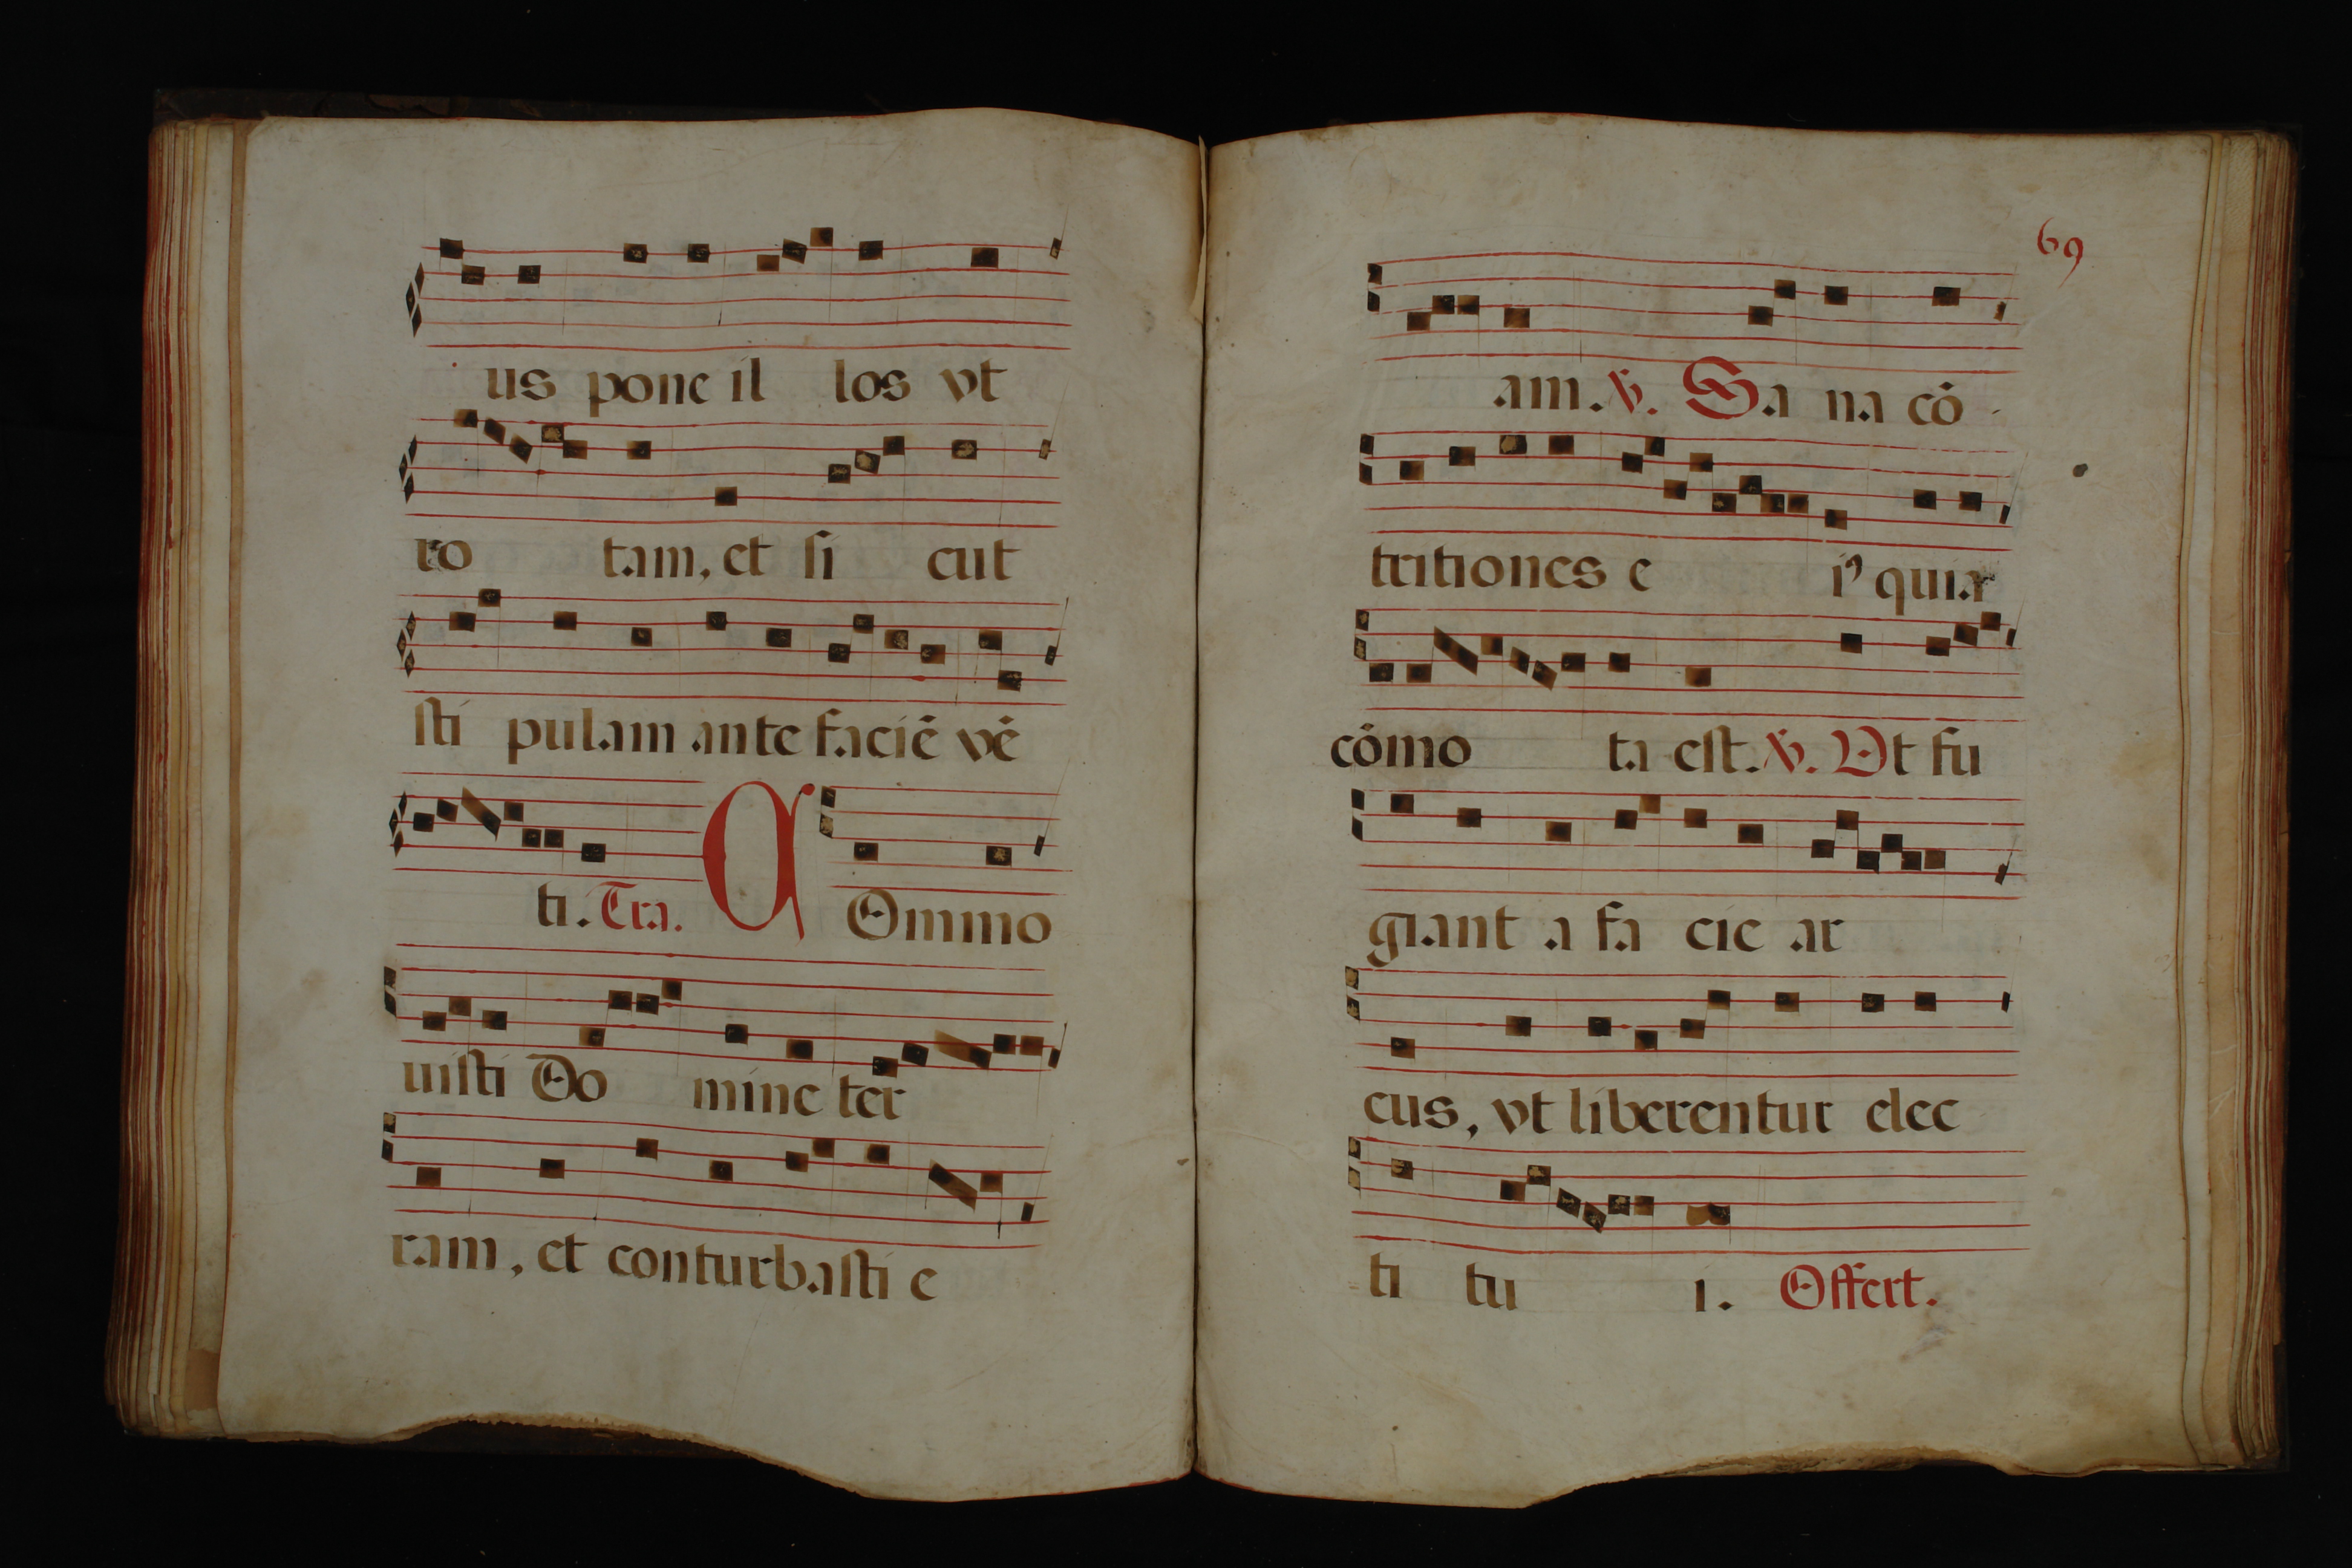 us pone il los vt
ro tam, et si cut
sti pulam ante faciē vē
ti. Tra. COmmo
uisti Do mine ter
ram, et conturbasti e
69
am. ℣. Sa na cō
tritiones e iꝰ quia
cōmo ta est. ℣. Vt fu
giant a fa cie ar
cus, vt liberentur elec
ti tu i. Offert.